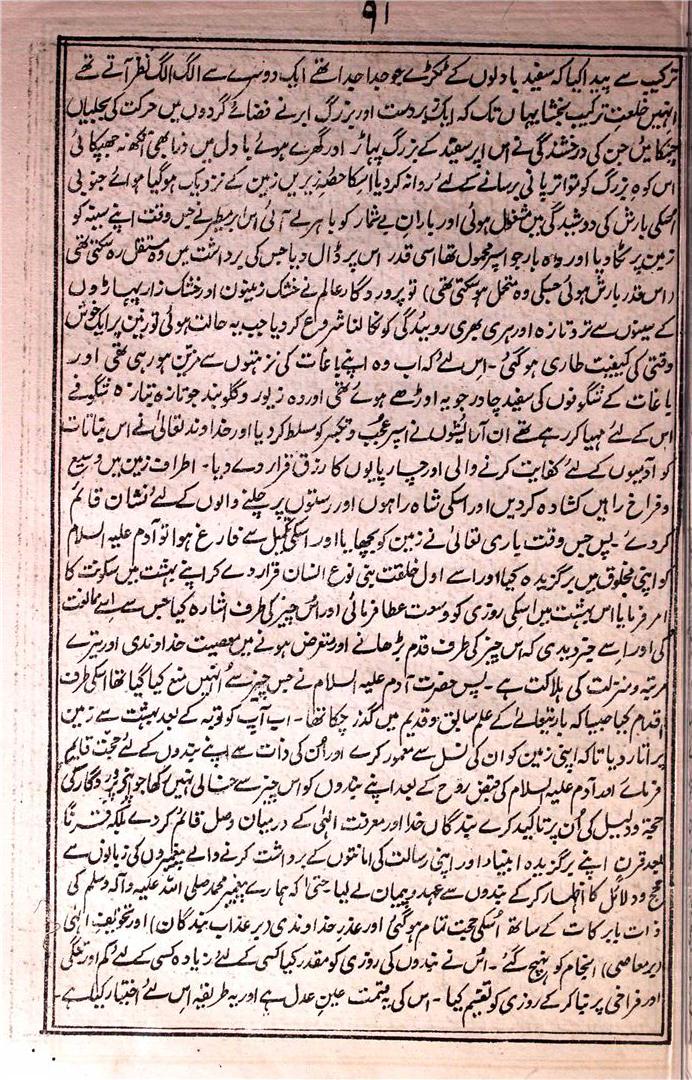 ۹۱
ترکیب سے پیدا کیا کہ سفید بادلوں کے ٹکڑے جو جدا جدا تھے ایک دوسرے سے الگ الگ نظر آتے تھے
انہیں خلعتِ ترکیب بخشا یہاں تک کہ ایک زبردست اور بزرگ ابر نے فضائے گردوں میں حرکت کی بجلیاں
چمکائیں جن کی درخشندگی نے اس ابر سفید کے بزرگ پہاڑ اور گھرے ہوئے بادل میں ذرا بھی آنکھ نہ جھپکائی
اس کوہ بزرگ کو متواتر پانی برسانے کے لئے روانہ کردیا اسکا حصہ زیریں زمین کے نزدیک ہوگیا ہوائے جنوبی
اسکی بارش کی دوشیدگی میں مشغول ہوئی اور باران بے شمار کو باہر لے آئی اس ابر مطیر نے جس وقت اپنے سینہ کو
زمین پر ٹکا دیا اور وہ بار جو اسپر محمول تھا اسی قدر اس پر ڈال دیا جس کی برداشت میں وہ مستقل رہ سکتی تھی
(اس قدر بارش ہوئی جسکی وہ متحمل ہو سکتی تھی) تو پروردگار عالم نے خشک زمینوں اور خشک زار پہاڑوں
کے سینوں سے تروتازہ اور ہری بھری روئیدگی کو نکالنا شروع کردیا جب یہ حالت ہوئی تو زمین پر ایک خوش
وقتی کی کیفیت طاری ہوگئی ۔ اس لئے کہ اب وہ اپنے باغات کی نزہتوں سے مزین ہو رہی تھی اور
باغات کے شگوفوں کی سفید چادر جو یہ اوڑھے ہوئے تھی اور وہ زیور و گلوبند جو تازہ بتازہ شگوفے
اس کے لئے مہیا کر رہے تھے ان آرائشوں نے اسپر عجب و تکبر کو مسلط کردیا اور خداوند تعالیٰ نے اس نباتات
کو آدمیوں کے لئے کفایت کرنے والی اور چارپایوں کا رزق قرار دے دیا ۔ اطراف زمین میں وسیع
و فراخ راہیں کشادہ کردیں اور اسکی شاہ راہوں اور رستوں پر چلنے والوں کے لئے نشان قائم
کردئے ۔ پس جس وقت باری تعالیٰ نے زمین کو بچھایا اور اسکی تکمیل سے فارغ ہوا تو آدم علیہ السلام
کو اپنی مخلوق میں برگزیدہ کیا اور اسے اول خلقت بنی نوع انسان قرار دے کر اپنے بہشت میں سکونت کا
امر فرمایا اس بہشت میں اسکی روزی کو وسعت عطا فرمائی اور اس چیز کی طرف اشارہ کیا جس سے اسے ممانعت
کی اور اسے خبر دیدی کہ اس چیز کی طرف قدم بڑھانے اور متعرض ہونے میں معصیت خداوندی اور تیرے
مرتبہ و منزلت کی ہلاکت ہے ۔ پس حضرت آدم علیہ السلام نے جس چیز سے انہیں منع کیا گیا تھا اسکی طرف
اقدام کیا جیسا کہ باریتعالیٰ کے علم سابق و قدیم میں گذر چکا تھا ۔ اب آپ کو توبہ کے بعد بہشت سے زمین
پر اتار دیا تاکہ اپنی زمین کو ان کی نسل سے معمور کرے اور ان کی ذات سے اپنے بندوں کے لئے حجت قایم
فرمائے اور آدم علیہ السلام کی قبض روح کے بعد اپنے بندوں کو اس چیز سے خالی نہیں رکھا جو اپنی پروردگار کی
حجت و دلیل کی اُن پر تاکید کرے بندگان خدا اور معرفت الٰہی کے درمیان وصل قائم کردے بلکہ قرناً
بعد قرنٍ اپنے برگزیدہ انبیاء اور اپنی رسالت کی امانتوں کے برداشت کرنے والے پیغمبروں کی زبانوں سے
حجج و دلائل کا اظہار کر کے بندوں سے عہد و پیمان لے لیا حتیٰ کہ ہمارے پیغمبر محمد صلی اللہ علیہ وآلہ وسلم کی
ذات بابرکات کے ساتھ اُسکی حجت تمام ہوگئی اور عذر خداوندی (بر عذاب بندگان) اور تخویف الٰہی
(بر معاصی) انجام کو پہنچ گئے ۔ اُس نے بندوں کی روزی کو مقدر کیا کسی کے لئے زیادہ کسی کے لئے کم اور تنگی
اور فراخی پر بنا کر کے روزی کو تقسیم کیا ۔ اس کی یہ قسمت عین عدل ہے اور یہ طریقہ اس لئے اختیار کیا ہے ۔